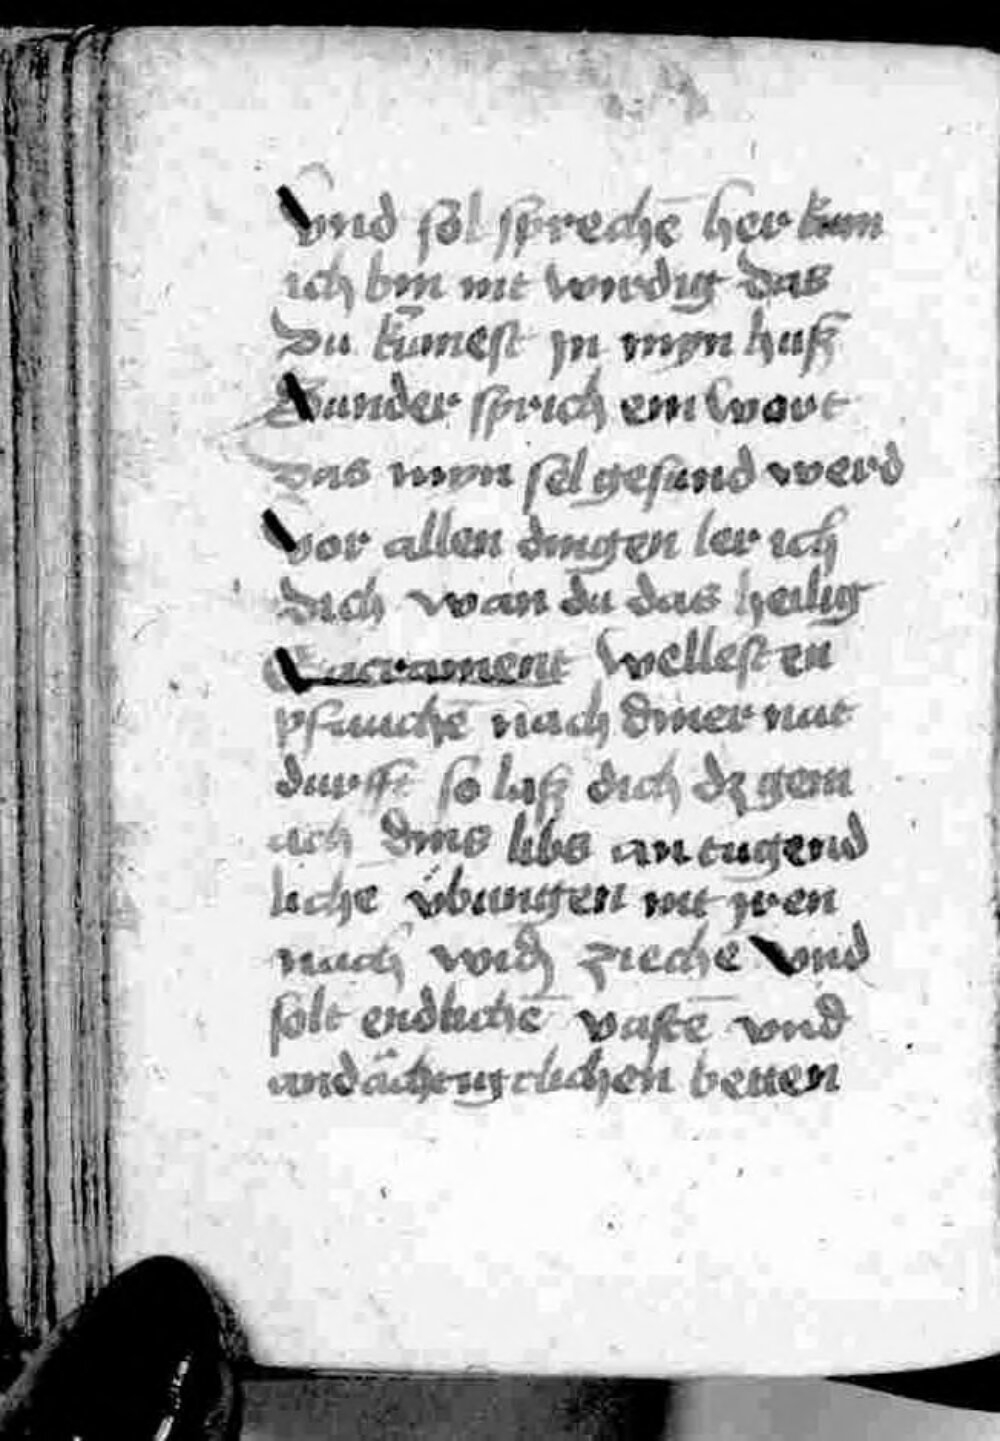 Vnd sol sprechē her kum
ich bin nit wirdig das
Du kumest jn myn huß
Sunder sprich ein wort
Das myn sel gesund werd
Vor allen dingen ler ich
dich wan du das heilig
Sacrament wellest en
pfauchē nach diner not
durfft so laß dich dz gem
ach dins libs an tugend
lichē übungen nit jren
noch widz zieche Vnd
solt endlichē vastē vnd
andächtigclichen betten